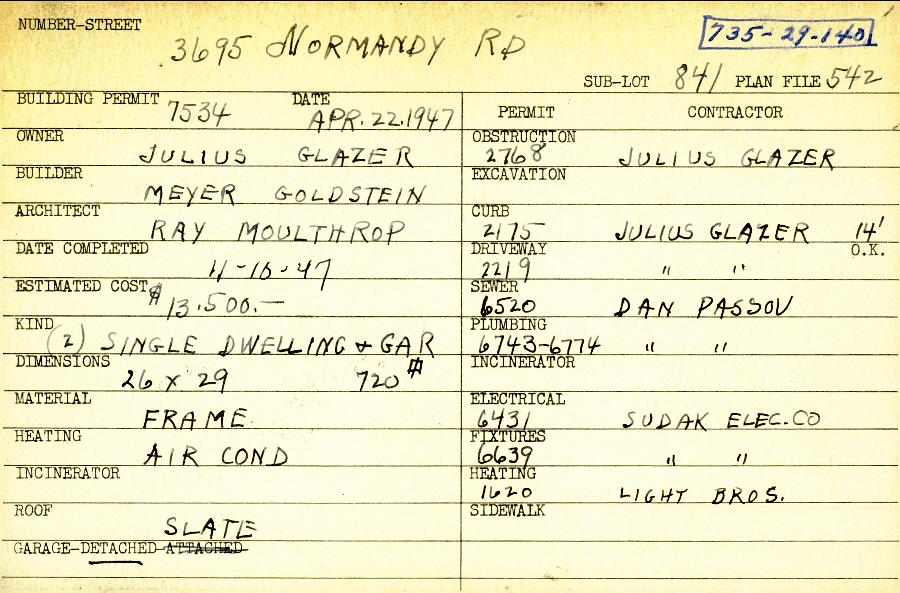 NUMBER-STREET
3695 NORMANDY RD
735-29-140
SUB-LOT 841 PLAN FILE 542
BUILDING PERMIT 7534 DATE APR. 22. 1947
OWNER
JULIUS GLAZER
BUILDER
MEYER GOLDSTEIN
ARCHITECT
RAY MOULTHROP
DATE COMPLETED
11-10-47
ESTIMATED COST
$13.500.—
KIND
(2) SINGLE DWELLING & GAR
DIMENSIONS
26 x 29 720 #
MATERIAL
FRAME
HEATING
AIR COND
INCINERATOR
ROOF
SLATE
GARAGE-DETACHED-ATTACHED
PERMIT CONTRACTOR
OBSTRUCTION
2768 JULIUS GLAZER
EXCAVATION
CURB
2175 JULIUS GLAZER 14'
DRIVEWAY O.K.
2219 " "
SEWER
6520 DAN PASSOV
PLUMBING
6743-6774 " "
INCINERATOR
ELECTRICAL
6431 SUDAK ELEC. CO
FIXTURES
6639 " "
HEATING
1620 LIGHT BROS.
SIDEWALK